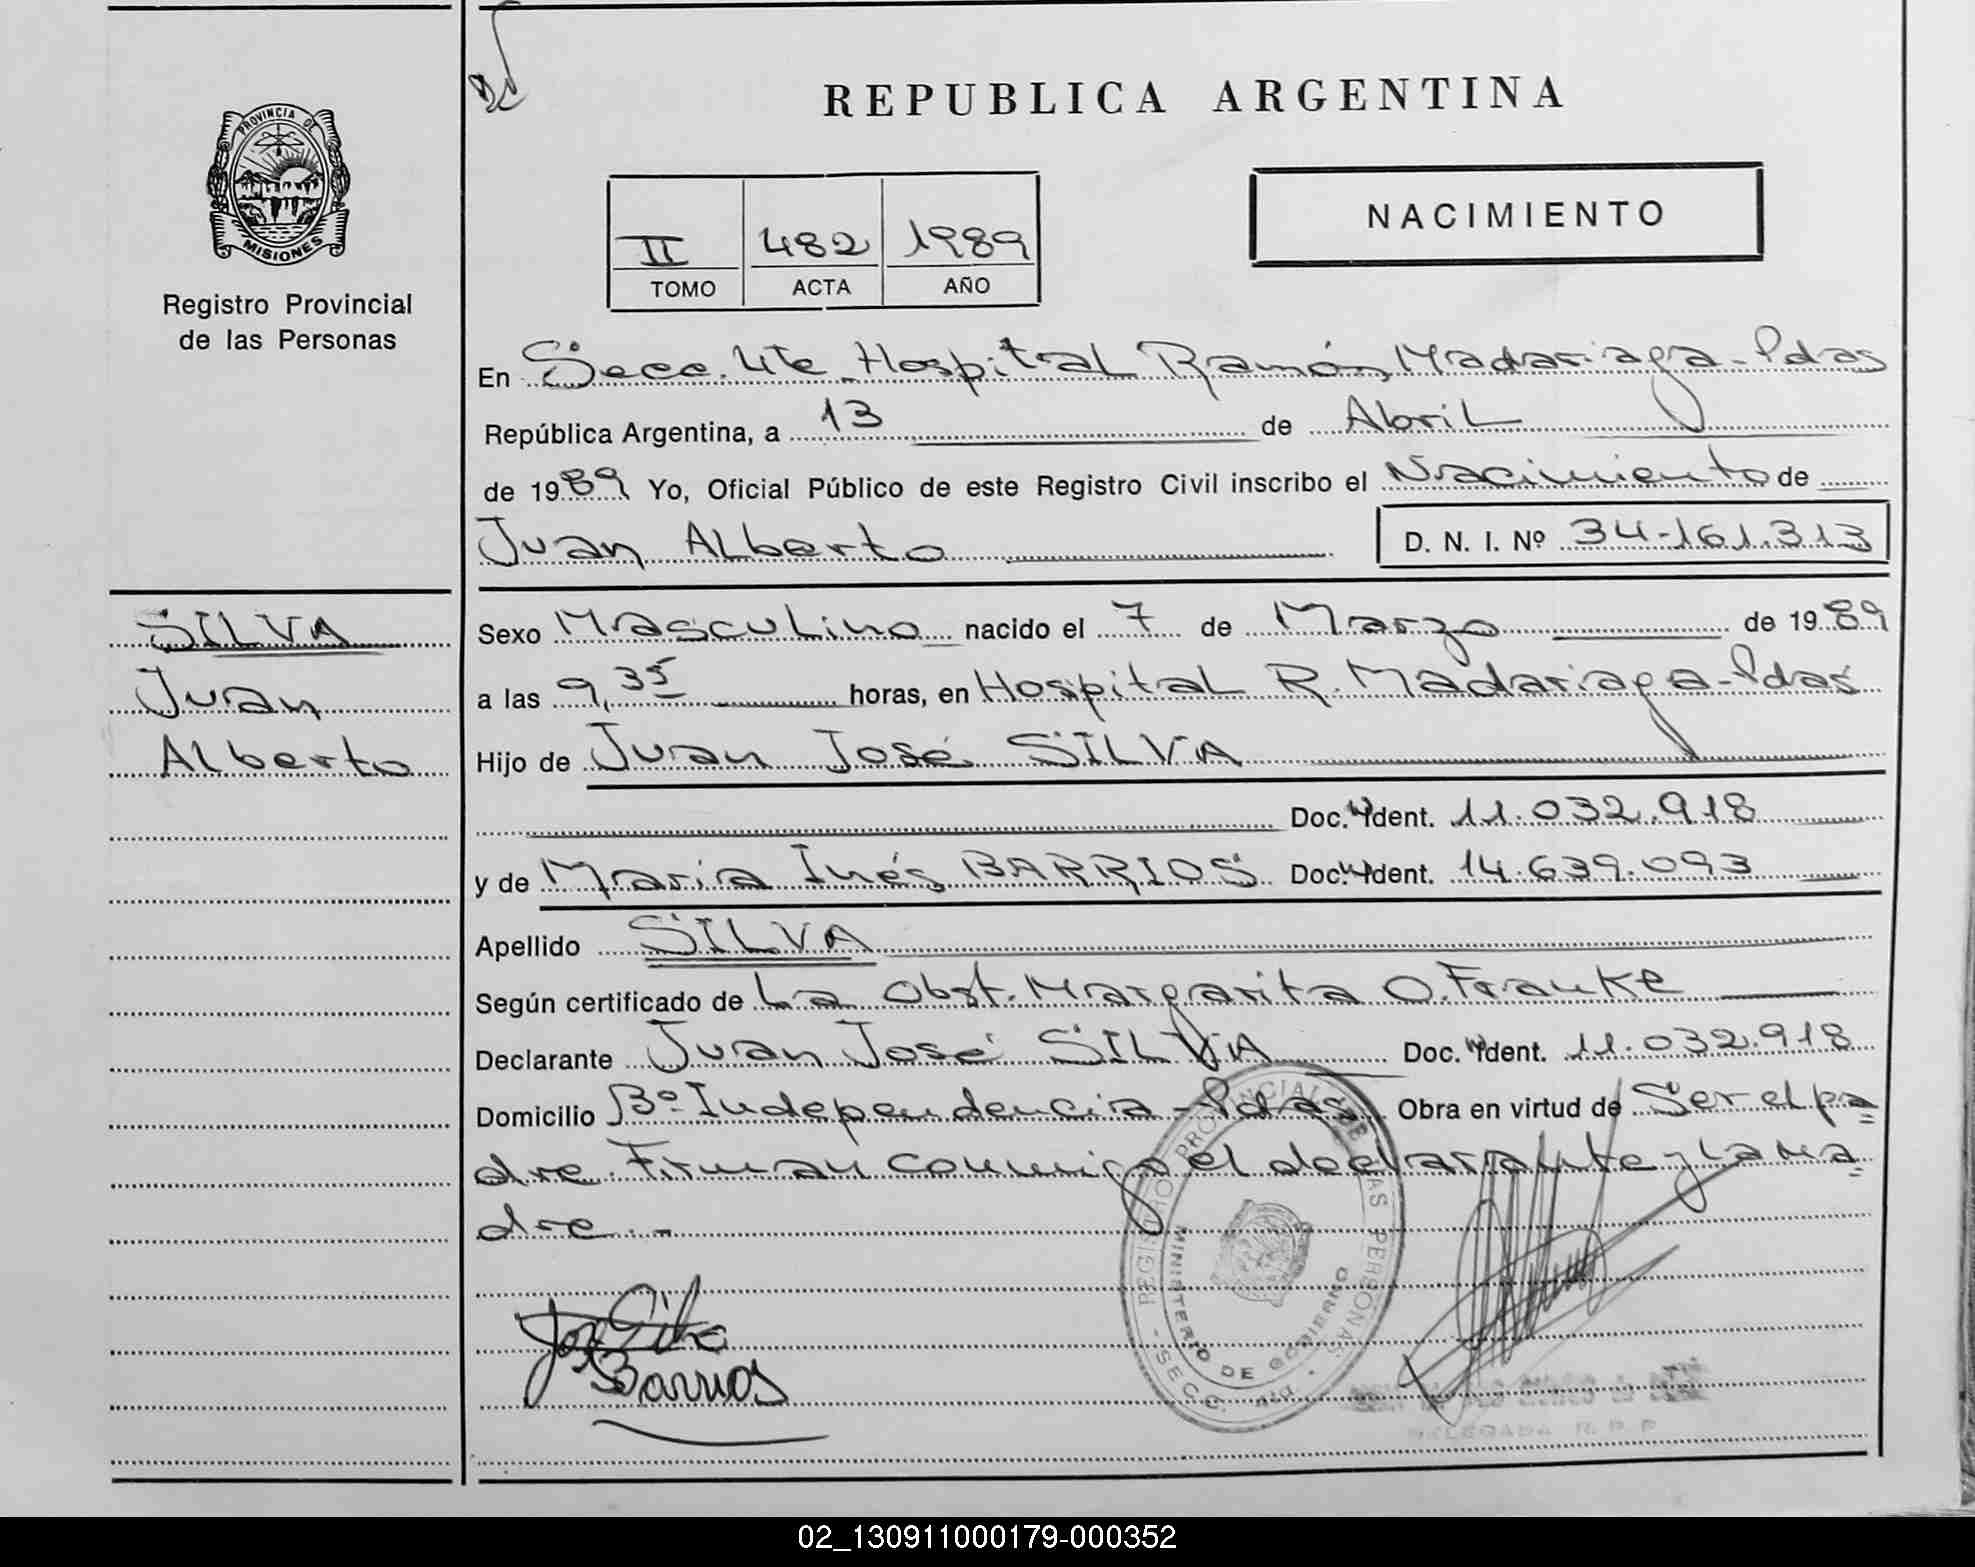 REPUBLICA ARGENTINA
PROVINCIA DE
MISIONES
Registro Provincial
de las Personas
NACIMIENTO
II 482 1989
TOMO ACTA AÑO
En Secc. 4ta Hospital Ramón Madariaga - Pdas
República Argentina, a 13 de Abril
de 1989 Yo, Oficial Público de este Registro Civil inscribo el Nacimiento de
Juan Alberto D. N. I. Nº 34.161.313
SILVA
Juan
Alberto
Sexo Masculino nacido el 7 de Marzo de 1989
a las 9,35 horas, en Hospital R. Madariaga - Pdas
Hijo de Juan José SILVA
Doc. Ident. 11.032.918
y de María Inés BARRIOS Doc. Ident. 14.639.093
Apellido SILVA
Según certificado de La Obst. Margarita O. Franke
Declarante Juan José SILVA Doc. Ident. 11.032.918
Domicilio Bº Independencia - Pdas Obra en virtud de Ser el pa=
dre. Firman conmigo el declarante y la ma=
dre.-
REGISTRO PROVINCIAL DE LAS PERSONAS
MINISTERIO DE GOBIERNO
SECC. 4ta
Barrios
DELEGADA R. P. P.
02_130911000179-000352